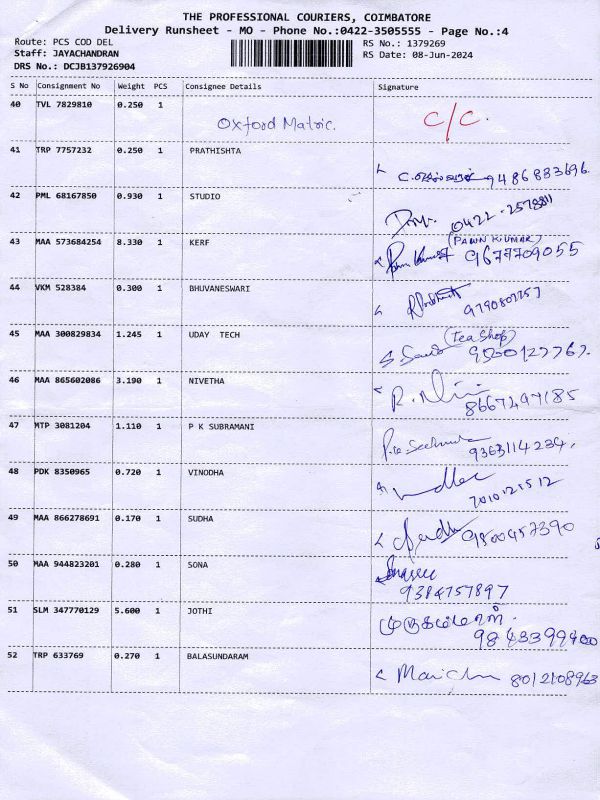 THE PROFESSIONAL COURIERS, COIMBATORE
Delivery Runsheet - MO - Phone No.:0422-3505555 - Page No.:4
Route: PCS COD DEL
RS No.: 1379269
Staff: JAYACHANDRAN
RS Date: 08-Jun-2024
DRS No.: DCJB137926904
S No Consignment No Weight PCS Consignee Details Signature
40 TVL 7829810 0.250 1 Oxford Matric. C/C.
41 TRP 7757232 0.250 1 PRATHISHTA 9486883696
42 PML 68167850 0.930 1 STUDIO 0422-2578811
43 MAA 573684254 8.330 1 KERF (PAWN KUMAR) 9677709055
44 VKM 528384 0.300 1 BHUVANESWARI
45 MAA 300829834 1.245 1 UDAY TECH (Tea Shop)
46 MAA 865602086 3.190 1 NIVETHA
47 MTP 3081204 1.110 1 P K SUBRAMANI 9363114234.
48 PDK 8350965 0.720 1 VINODHA
49 MAA 866278691 0.170 1 SUDHA 9500457390
50 MAA 944823201 0.280 1 SONA 9384757897
51 SLM 347770129 5.600 1 JOTHI
52 TRP 633769 0.270 1 BALASUNDARAM 8012108963